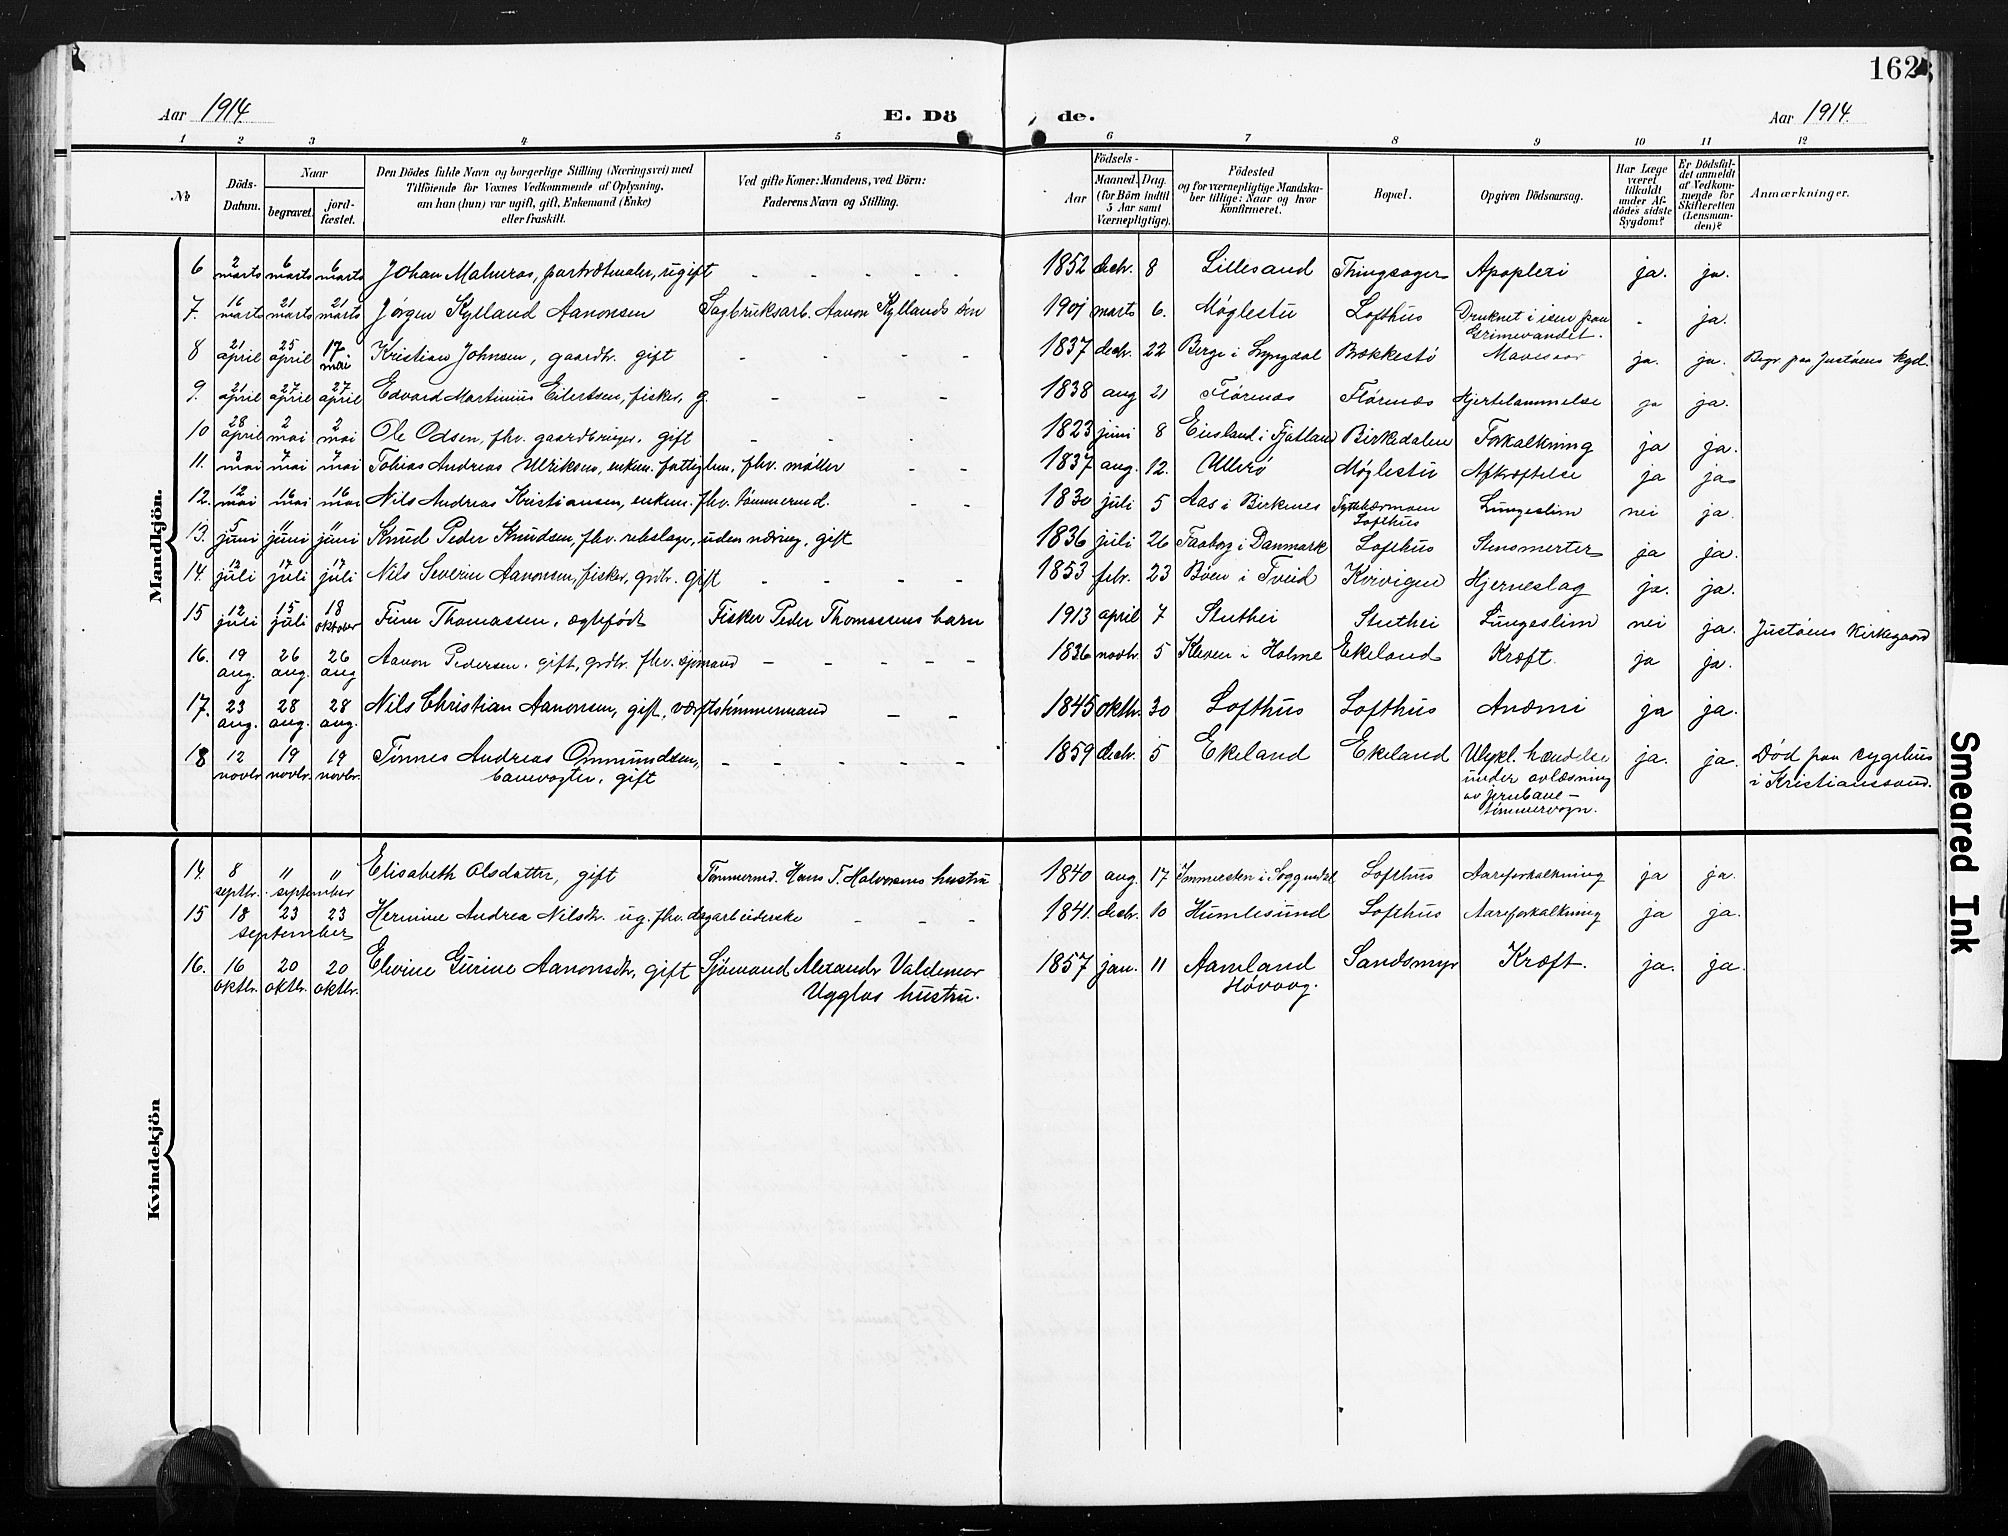 162
Aar 1914. E. Dö de. Aar 1914.
1 2 3 4 5 6 7 8 9 10 11 12
№ Döds-Datum. Naar begravet. jord-fæstet. Den Dödes fulde Navn og borgerlige Stilling (Næringsvei) med Tilföiende for Voxnes Vedkommende af Oplysning, om han (hun) var ugift, gift, Enkemand (Enke) eller fraskilt. Ved gifte Koner: Mandens, ved Börn: Faderens Navn og Stilling. Födsels- Aar Maaned. Dag. (for Börn indtil 5 Aar samt Værnepligtige). Födested og for værnepligtige Mandska-ber tillige: Naar og hvor konfirmeret. Bopæl. Opgiven Dödsaarsag. Har Læge været tilkaldt under Af-dödes sidste Sygdom? Er Dödsfal-det anmeldt af Vedkom-mende for Skifteretten (Lensman-den)? Anmærkninger.
Mandkjön.
6 2 marts 6 marts 6 marts Johan Malmros, portrætmaler, ugift - - - - 1852 decbr. 8 Lillesand Thingsager Apoplexi ja. ja.
7. 16 marts 21 marts 21 marts Jörgen Kylland Aanonsen Sagbruksarb. Aanon Kyllands sön 1901 marts 6. Møglestu Lofthus Druknet i isen paa Grimevandet. - ja.
8 21 april 25 april 17 mai Kristian Johnsen, gaardbr. gift - - - - 1837 decbr. 22 Berge i Lyngdal Bækkestö Mavesaar ja. ja. Begr. paa Justöens kgd.
9. 21 april 27 april 27 april Edvard Martinius Eilertsen, fisker, g. - - - 1838 aug 21 Flörenæs Flörenæs Hjertelammelse ja ja.
10 28 april 2 mai 2 mai Ole Odsen, fhv. gaardbruger. gift - - - 1823 juni 8 Eiesland i Fjotland Birkedalen Forkalkning ja ja.
11. 3 mai 7 mai 7 mai Tobias Andreas Ulriksen, enkem. fattiglem, fhv. møller - - 1837 aug. 12. Ullerö Møglestu Afkræftelse ja ja
12. 12 mai 16 mai 16 mai Nils Andreas Kristiansen, enkem. fhv. tömmermd. - - 1830 juli 5 Aas i Birkenes Lofthus Lungeslim nei ja.
13. 5 juni 11 juni 11 juni Knud Peder Knudsen, fhv. rebslager, uden næring, gift 1836 juli 26 Faaborg i Danmark Lofthus Stensmerter ja ja.
14. 12 juli 17 juli 17 juli Nils Severin Aanonsen, fisker, grdbr. gift - - - - 1853 febr. 23 Boen i Tveid Kvrvigen Hjerneslag ja. ja.
15 12 juli 15 juli 18 oktober Finn Thomassen, ægtefödt Fisker Peder Thomassens barn 1913 april 7 Stuthei Stuthei Lungeslim nei ja. Justöens Kirkegaard
16. 19 aug. 26 aug. 26 aug Aanon Pedersen, gift, grdbr. fhv. sjömand - - - - 1836 novbr. 5 Kleven i Holme Ekeland Kræft. ja ja.
17. 23 aug. 28 aug. 28 aug. Nils Christian Aanonsen, gift, værftstömmermand - - 1845 oktbr. 30 Lofthus Lofthus Anæmi ja ja.
18 12 novbr 19 novbr. 19 novbr. Tönnes Andreas Ommundsen, banevogter, gift - - - - 1859 decbr. 5 Ekeland Ekeland Ulykl. hændelse under avlæsning av jernbane-tömmervogn. ja. ja. Död paa sygehus i Kristianssand.
Kvindekjön
14. 8 septbr. 11 11 september Elisabeth Olsdatter, gift Tömmermd. Hans T. Halvorsens hustru 1840 aug. 17 Immersten i Soggendal Lofthus Aareforkalkning ja ja.
15 18 23 23 september Hermine Andrea Nilsdtr. ug. fhv. dagarbeiderske - - - 1841. decbr. 10 Humlesund Lofthus Aareforkalkning ja ja.
16. 16 oktbr. 20 oktbr. 20 oktbr. Elevine Gurine Aanonsdtr, gift Sjömand Alexander Valdemar Ugglas hustru. 1857 jan. 11 Aamland Hövaag. Sandsmyr Kræft. ja. ja.
Smeared Ink